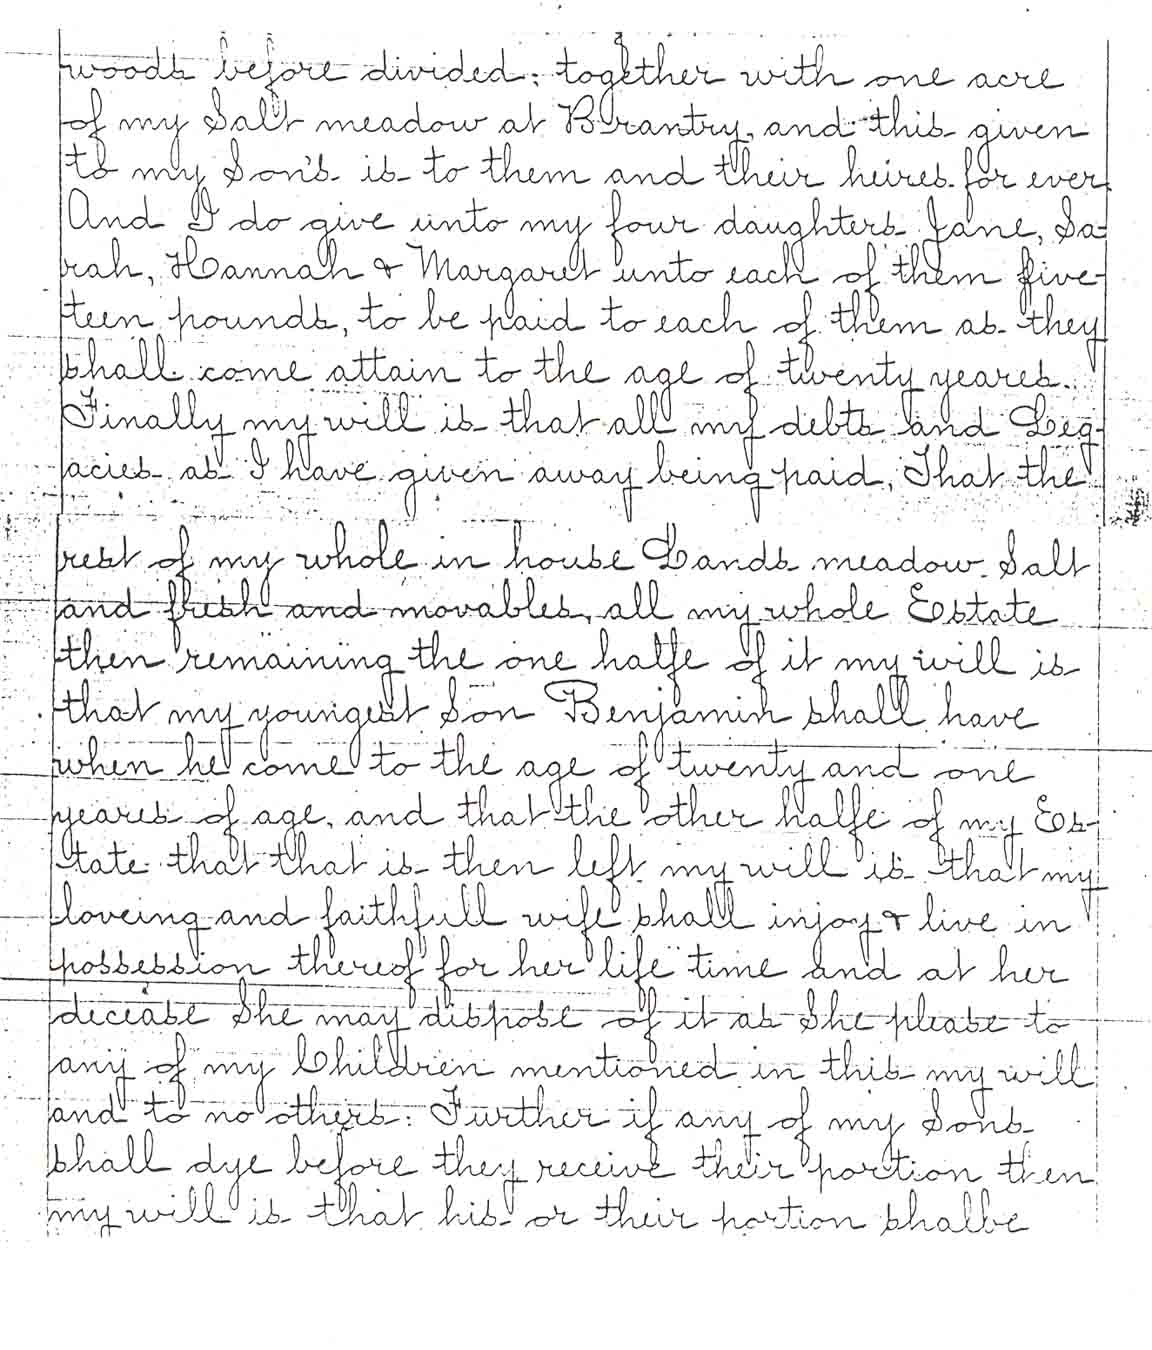 woods before divided; together with one acre
of my Salt meadow at Brantry, and this given
to my Son's is to them and their heires for ever
And I do give unto my four daughters Jane, Sa-
rah, Hannah & Margaret unto each of them five-
teen pounds, to be paid to each of them as they
shall come attain to the age of twenty yeares.
Finally my will is that all my debts and Leg-
acies as I have given away being paid, That the
rest of my whole in house Lands meadow Salt
and fresh and movables, all my whole Estate
then remaining the one halfe of it my will is
that my youngest Son Benjamin shall have
when he come to the age of twenty and one
yeares of age, and that the other halfe of my Es-
tate that that is then left my will is that my
loveing and faithfull wife shall injoy & live in
possession thereof for her life time and at her
decease She may dispose of it as She please to
any of my Children mentioned in this my will
and to no others: Further if any of my Sons
shall dye before they receive their portion then
my will is that his or their portion shalbe